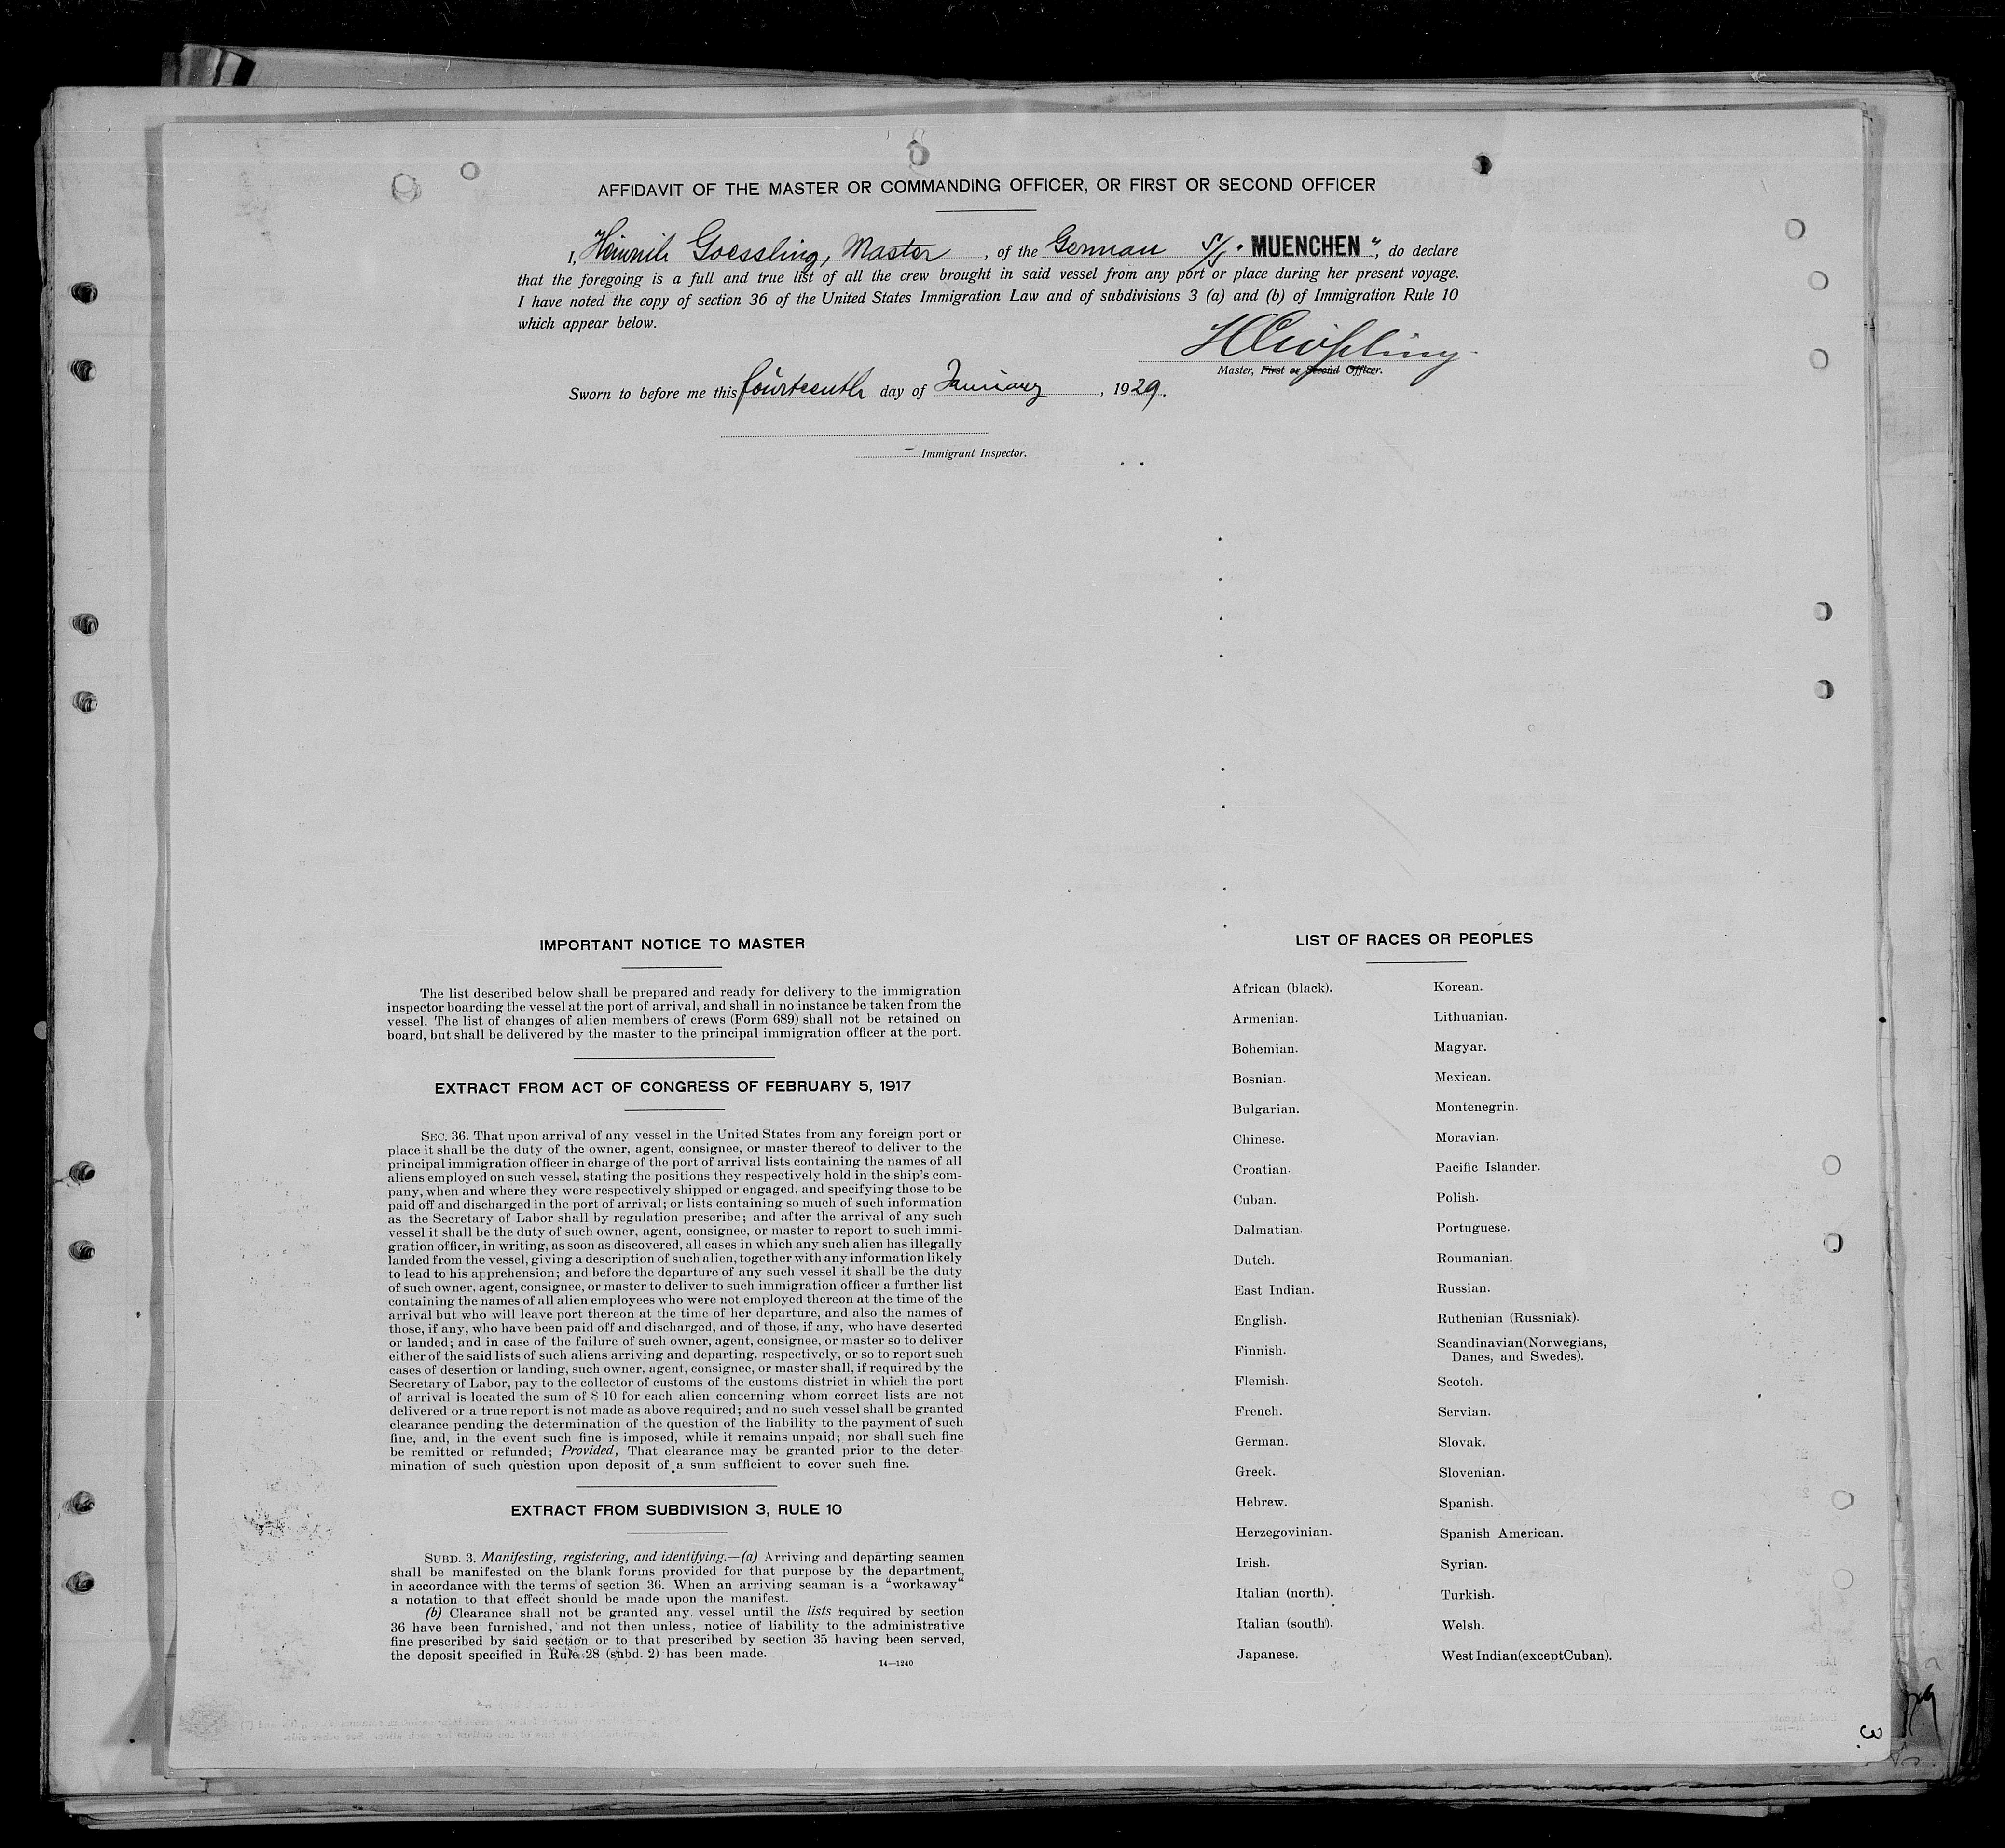 AFFIDAVIT OF THE MASTER OR COMMANDING OFFICER, OR FIRST OR SECOND OFFICER
I, Heinrich Goessling, Master, of the German S/S "MUENCHEN", do declare
that the foregoing is a full and true list of all the crew brought in said vessel from any port or place during her present voyage.
I have noted the copy of section 36 of the United States Immigration Law and of subdivisions 3 (a) and (b) of Immigration Rule 10
which appear below.
HGoessling
Master, First or Second Officer.
Sworn to before me this fourteenth day of January, 1929.
Immigrant Inspector.
IMPORTANT NOTICE TO MASTER
The list described below shall be prepared and ready for delivery to the immigration
inspector boarding the vessel at the port of arrival, and shall in no instance be taken from the
vessel. The list of changes of alien members of crews (Form 689) shall not be retained on
board, but shall be delivered by the master to the principal immigration officer at the port.
EXTRACT FROM ACT OF CONGRESS OF FEBRUARY 5, 1917
SEC. 36. That upon arrival of any vessel in the United States from any foreign port or
place it shall be the duty of the owner, agent, consignee, or master thereof to deliver to the
principal immigration officer in charge of the port of arrival lists containing the names of all
aliens employed on such vessel, stating the positions they respectively hold in the ship's com-
pany, when and where they were respectively shipped or engaged, and specifying those to be
paid off and discharged in the port of arrival; or lists containing so much of such information
as the Secretary of Labor shall by regulation prescribe; and after the arrival of any such
vessel it shall be the duty of such owner, agent, consignee, or master to report to such immi-
gration officer, in writing, as soon as discovered, all cases in which any such alien has illegally
landed from the vessel, giving a description of such alien, together with any information likely
to lead to his apprehension; and before the departure of any such vessel it shall be the duty
of such owner, agent, consignee, or master to deliver to such immigration officer a further list
containing the names of all alien employees who were not employed thereon at the time of the
arrival but who will leave port thereon at the time of her departure, and also the names of
those, if any, who have been paid off and discharged, and of those, if any, who have deserted
or landed; and in case of the failure of such owner, agent, consignee, or master so to deliver
either of the said lists of such aliens arriving and departing, respectively, or so to report such
cases of desertion or landing, such owner, agent, consignee, or master shall, if required by the
Secretary of Labor, pay to the collector of customs of the customs district in which the port
of arrival is located the sum of $ 10 for each alien concerning whom correct lists are not
delivered or a true report is not made as above required; and no such vessel shall be granted
clearance pending the determination of the question of the liability to the payment of such
fine, and, in the event such fine is imposed, while it remains unpaid; nor shall such fine
be remitted or refunded; Provided, That clearance may be granted prior to the deter-
mination of such question upon deposit of a sum sufficient to cover such fine.
EXTRACT FROM SUBDIVISION 3, RULE 10
SUBD. 3. Manifesting, registering, and identifying.—(a) Arriving and departing seamen
shall be manifested on the blank forms provided for that purpose by the department,
in accordance with the terms of section 36. When an arriving seaman is a "workaway"
a notation to that effect should be made upon the manifest.
(b) Clearance shall not be granted any vessel until the lists required by section
36 have been furnished, and not then unless, notice of liability to the administrative
fine prescribed by said section or to that prescribed by section 35 having been served,
the deposit specified in Rule 28 (subd. 2) has been made.
14—1240
LIST OF RACES OR PEOPLES
African (black).
Armenian.
Bohemian.
Bosnian.
Bulgarian.
Chinese.
Croatian.
Cuban.
Dalmatian.
Dutch.
East Indian.
English.
Finnish.
Flemish.
French.
German.
Greek.
Hebrew.
Herzegovinian.
Irish.
Italian (north).
Italian (south).
Japanese.
Korean.
Lithuanian.
Magyar.
Mexican.
Montenegrin.
Moravian.
Pacific Islander.
Polish.
Portuguese.
Roumanian.
Russian.
Ruthenian (Russniak).
Scandinavian(Norwegians,
Danes, and Swedes).
Scotch.
Servian.
Slovak.
Slovenian.
Spanish.
Spanish American.
Syrian.
Turkish.
Welsh.
West Indian(except Cuban).
3.